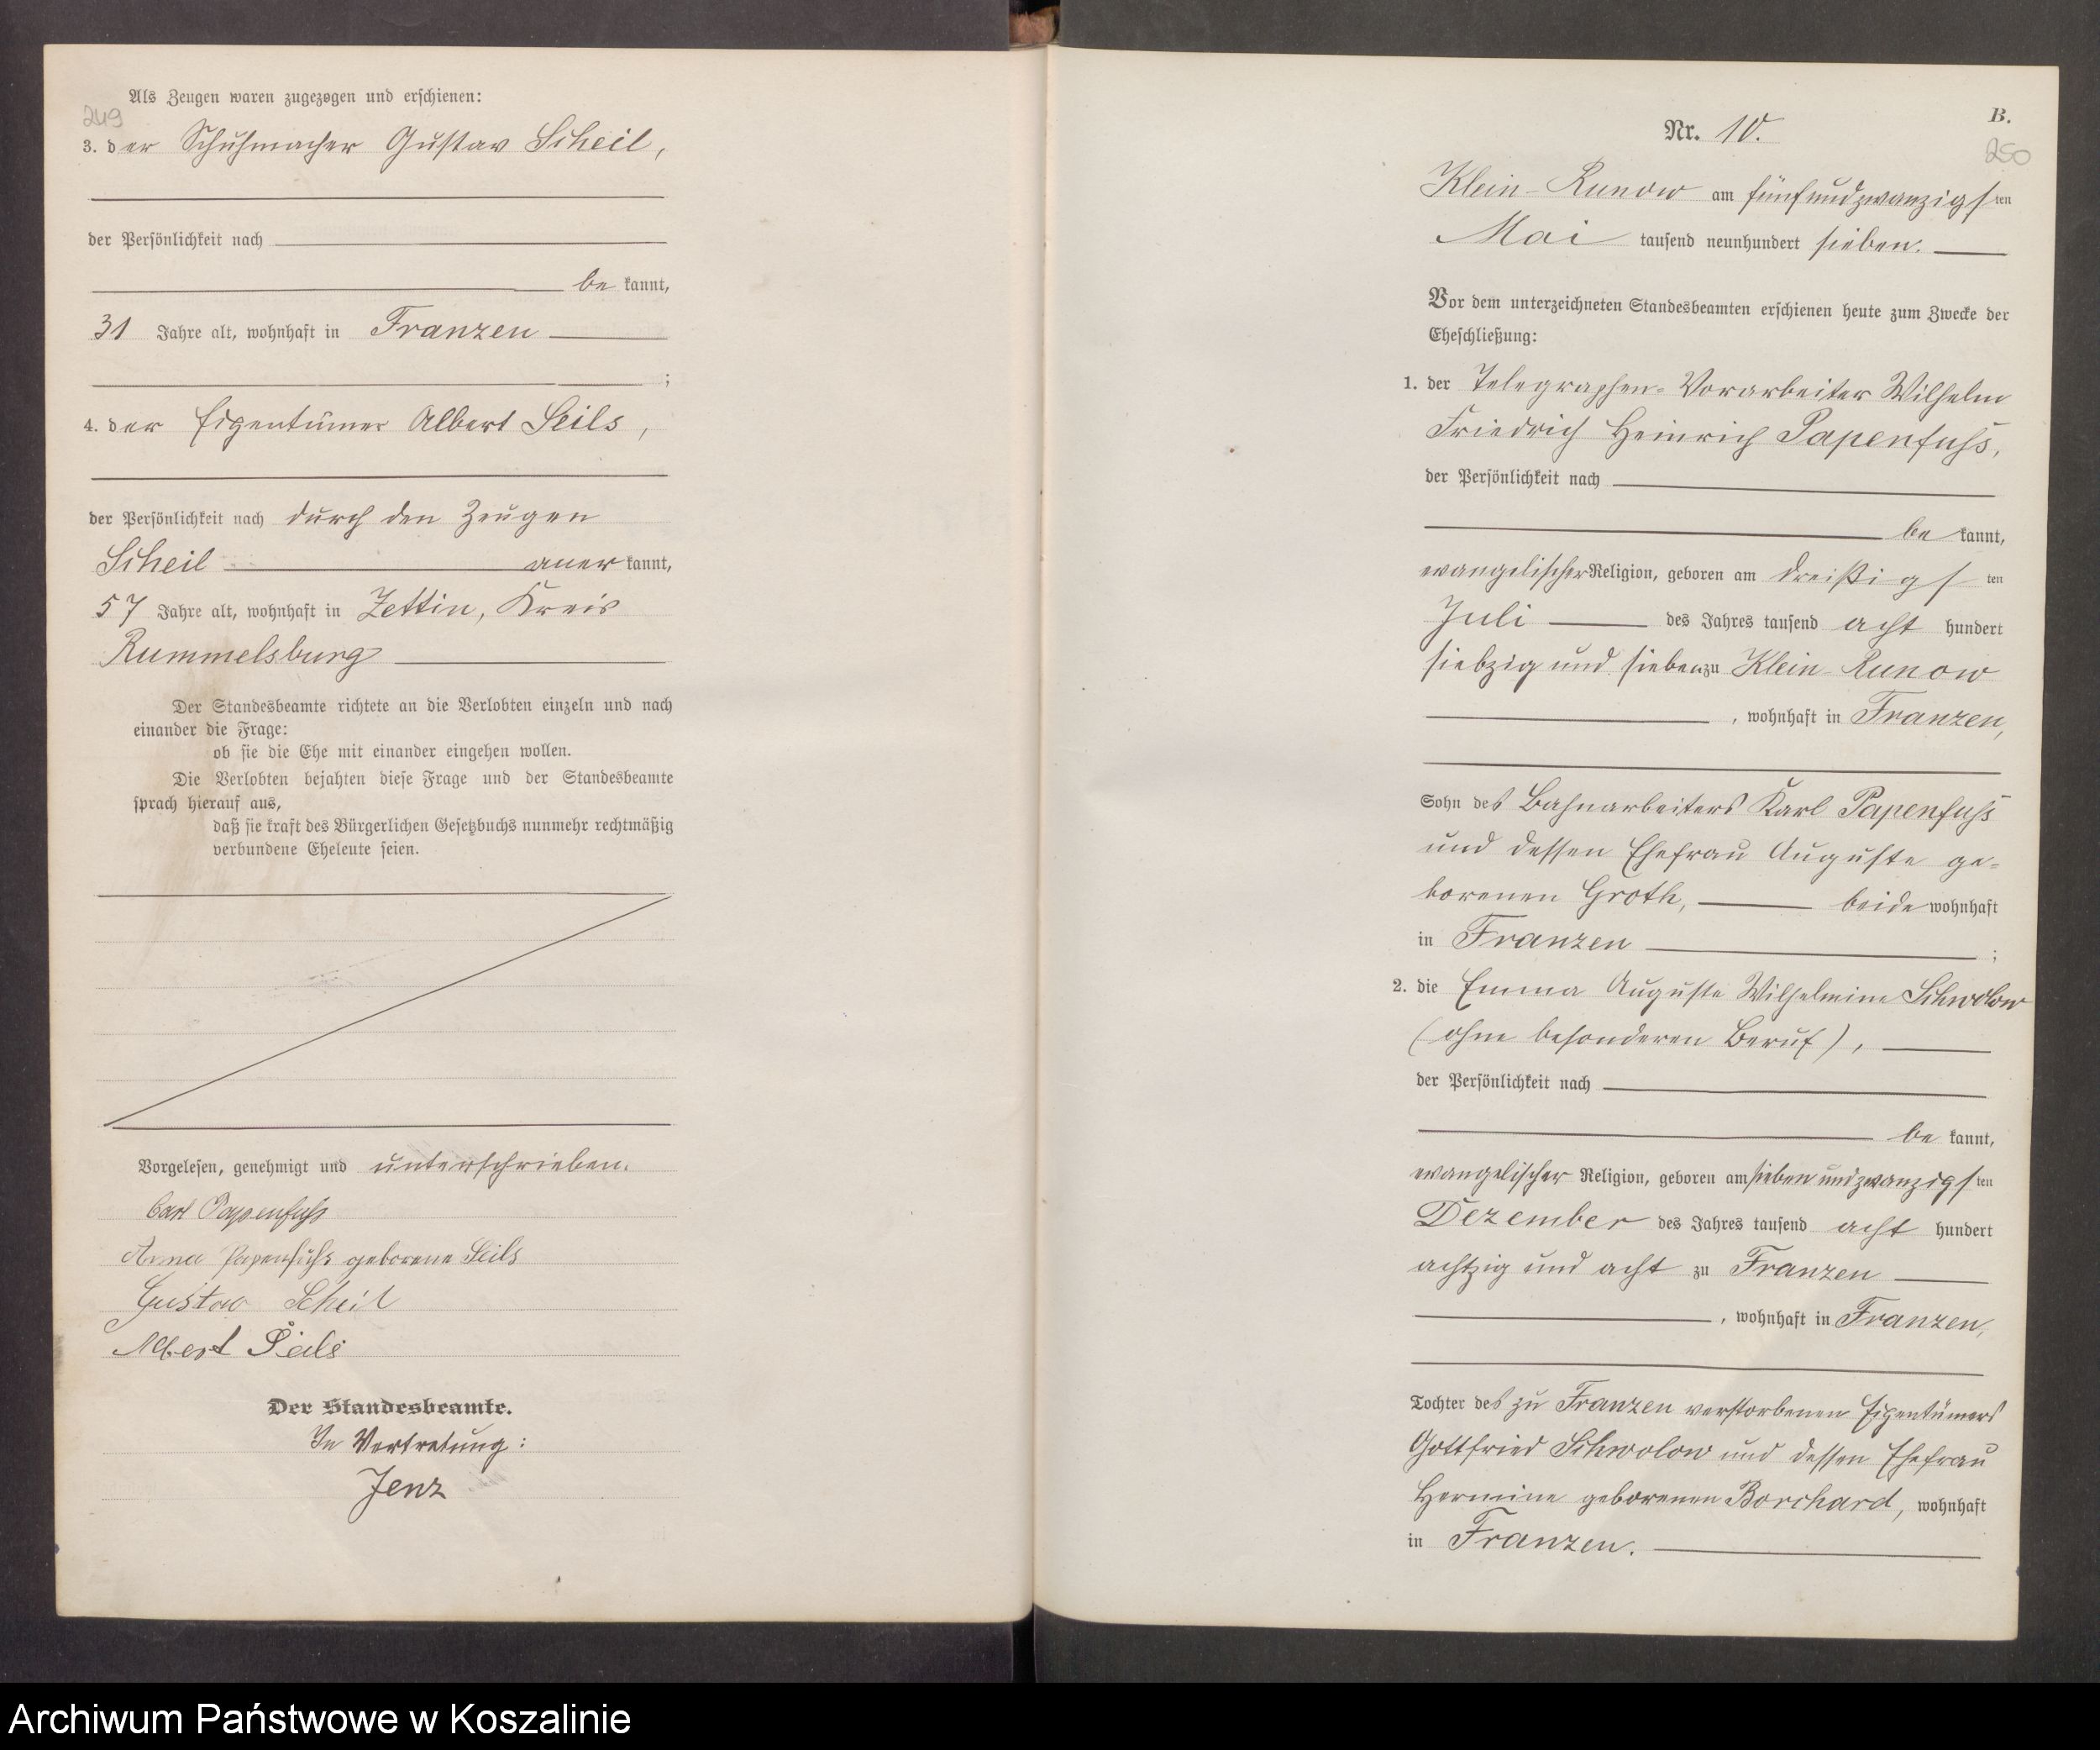 249
Als Zeugen waren zugezogen und erschienen:
3. der Schuhmacher Gustav Scheil,
der Persönlichkeit nach
be kannt,
31 Jahre alt, wohnhaft in Franzen
;
4. der Eigentümer Albert Seils,
der Persönlichkeit nach durch den Zeugen
Scheil aner kannt,
57 Jahre alt, wohnhaft in Zettin, Kreis
Rummelsburg
Der Standesbeamte richtete an die Verlobten einzeln und nach
einander die Frage:
ob sie die Ehe mit einander eingehen wollen.
Die Verlobten bejahten diese Frage und der Standesbeamte
sprach hierauf aus,
daß sie kraft des Bürgerlichen Gesetzbuchs nunmehr rechtmäßig
verbundene Eheleute seien.
Vorgelesen, genehmigt und unterschrieben.
Carl Papenfuhs
Anna Papenfuhs geborene Seils
Gustav Scheil
Albert Seils
Der Standesbeamte.
In Vertretung:
Jenz
B.
Nr. 10.
250
Klein-Runow am fünfundzwanzigsten
Mai tausend neunhundert sieben.
Vor dem unterzeichneten Standesbeamten erschienen heute zum Zwecke der
Eheschließung:
1. der Telegraphen-Vorarbeiter Wilhelm
Friedrich Heinrich Papenfuhs,
der Persönlichkeit nach
be kannt,
evangelischer Religion, geboren am dreißigsten
Juli des Jahres tausend acht hundert
siebzig und sieben zu Klein-Runow
, wohnhaft in Franzen,
Sohn des Bahnarbeiters Karl Papenfuhs
und dessen Ehefrau Auguste ge-
borenen Groth, beide wohnhaft
in Franzen ;
2. die Emma Auguste Wilhelmine Schwolow
(ohne besonderen Beruf),
der Persönlichkeit nach
be kannt,
evangelischer Religion, geboren am siebenundzwanzigsten
Dezember des Jahres tausend acht hundert
achtzig und acht zu Franzen
, wohnhaft in Franzen,
Tochter des zu Franzen verstorbenen Eigentümers
Gottfried Schwolow und dessen Ehefrau
Hermine geborenen Borchard, wohnhaft
in Franzen.
Archiwum Państwowe w Koszalinie